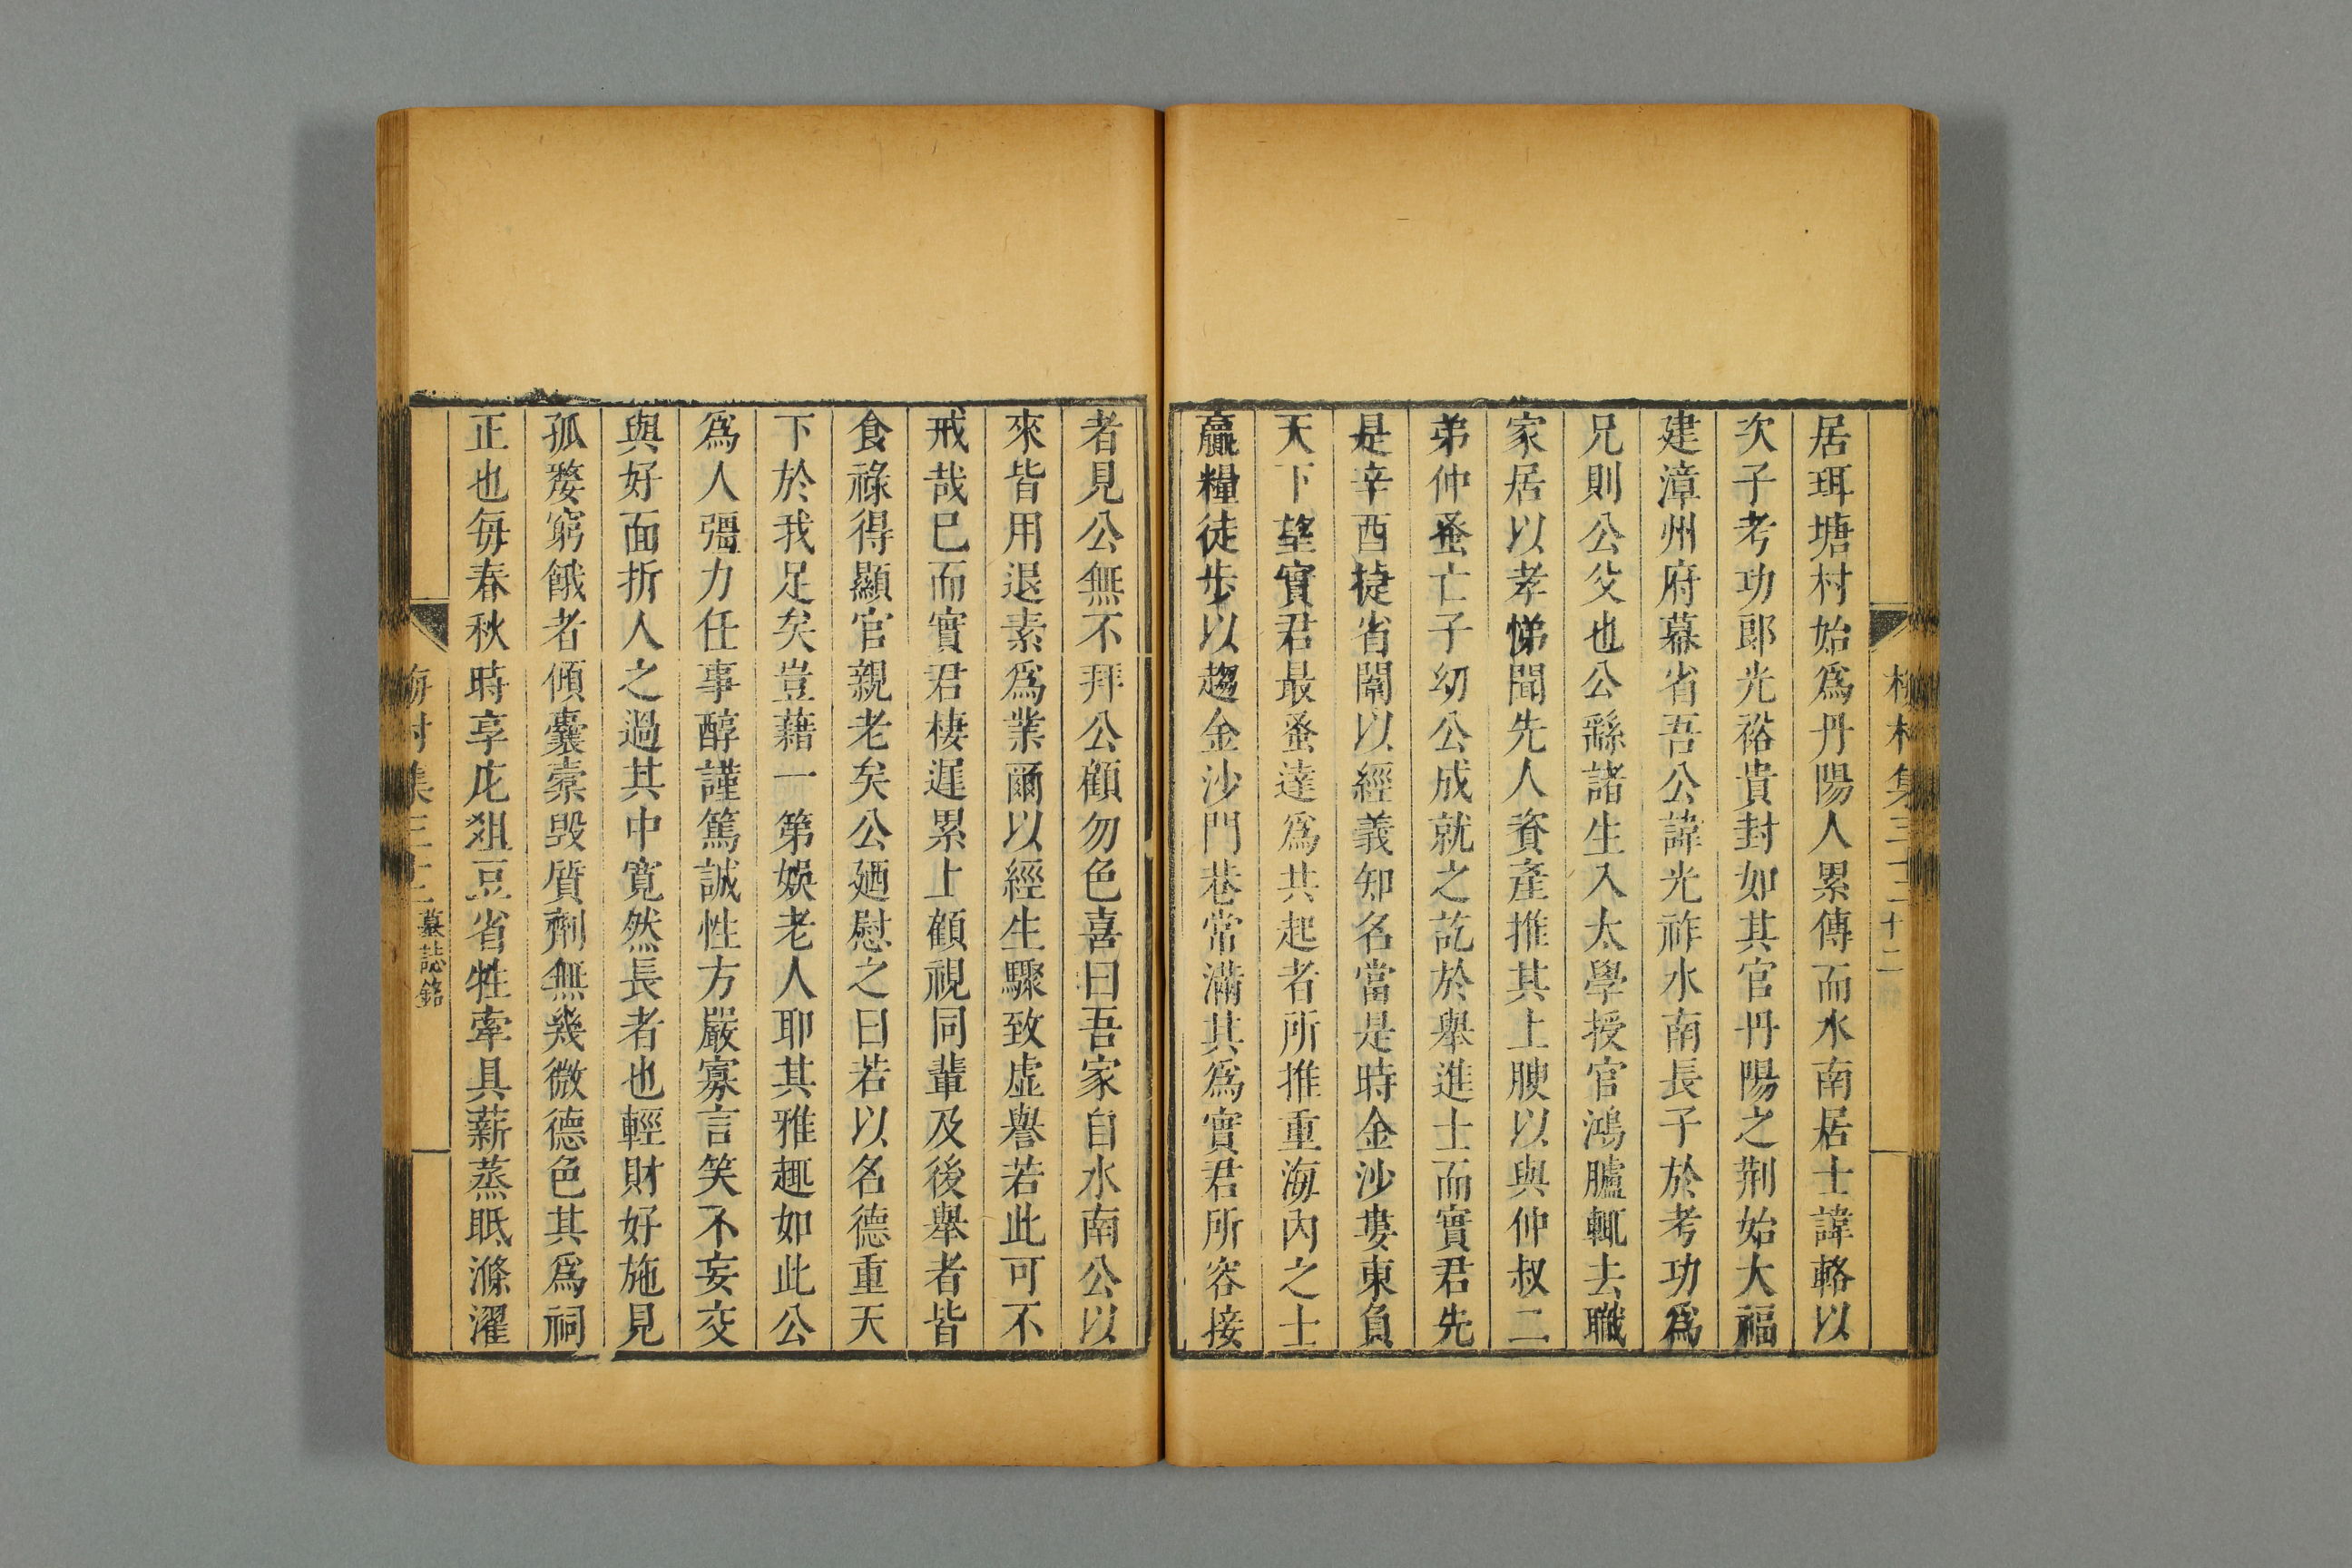 居珥塘村始爲丹陽人累傳而水南居士諱輅以
次子考功郎光裕貴封如其官丹陽之荆始大福
建漳州府幕省吾公諱光祚水南長子於考功爲
兄則公父也公繇諸生入太學授官鴻臚輒去職
家居以孝悌聞先人資產推其上腴以與仲叔二
弟仲蚤亡子幼公成就之訖於舉進士而實君先
是辛酉捷省闈以經義知名當是時金沙婁東負
天下望實君最蚤達爲其起者所推重海內之士
贏糧徒步以趨金沙門巷常滿其爲實君所容接
者見公無不拜公顧勿色喜曰吾家自水南公以
來皆用退素爲業爾以經生驟致虛譽若此可不
戒哉巳而實君棲遲累上顧視同輩及後舉者皆
食祿得顯官親老矣公廼慰之曰若以名德重天
下於我足矣豈藉一第娛老人耶其雅趣如此公
爲人彊力任事醇謹篤誠性方嚴寡言笑不妄交
與好面折人之過其中寬然長者也輕財好施見
孤嫠窮餓者傾囊橐毀質劑無幾微德色其爲祠
正也每春秋時享庀俎豆省牲牽具薪蒸眂滌濯
梅村集三十二 墓誌銘